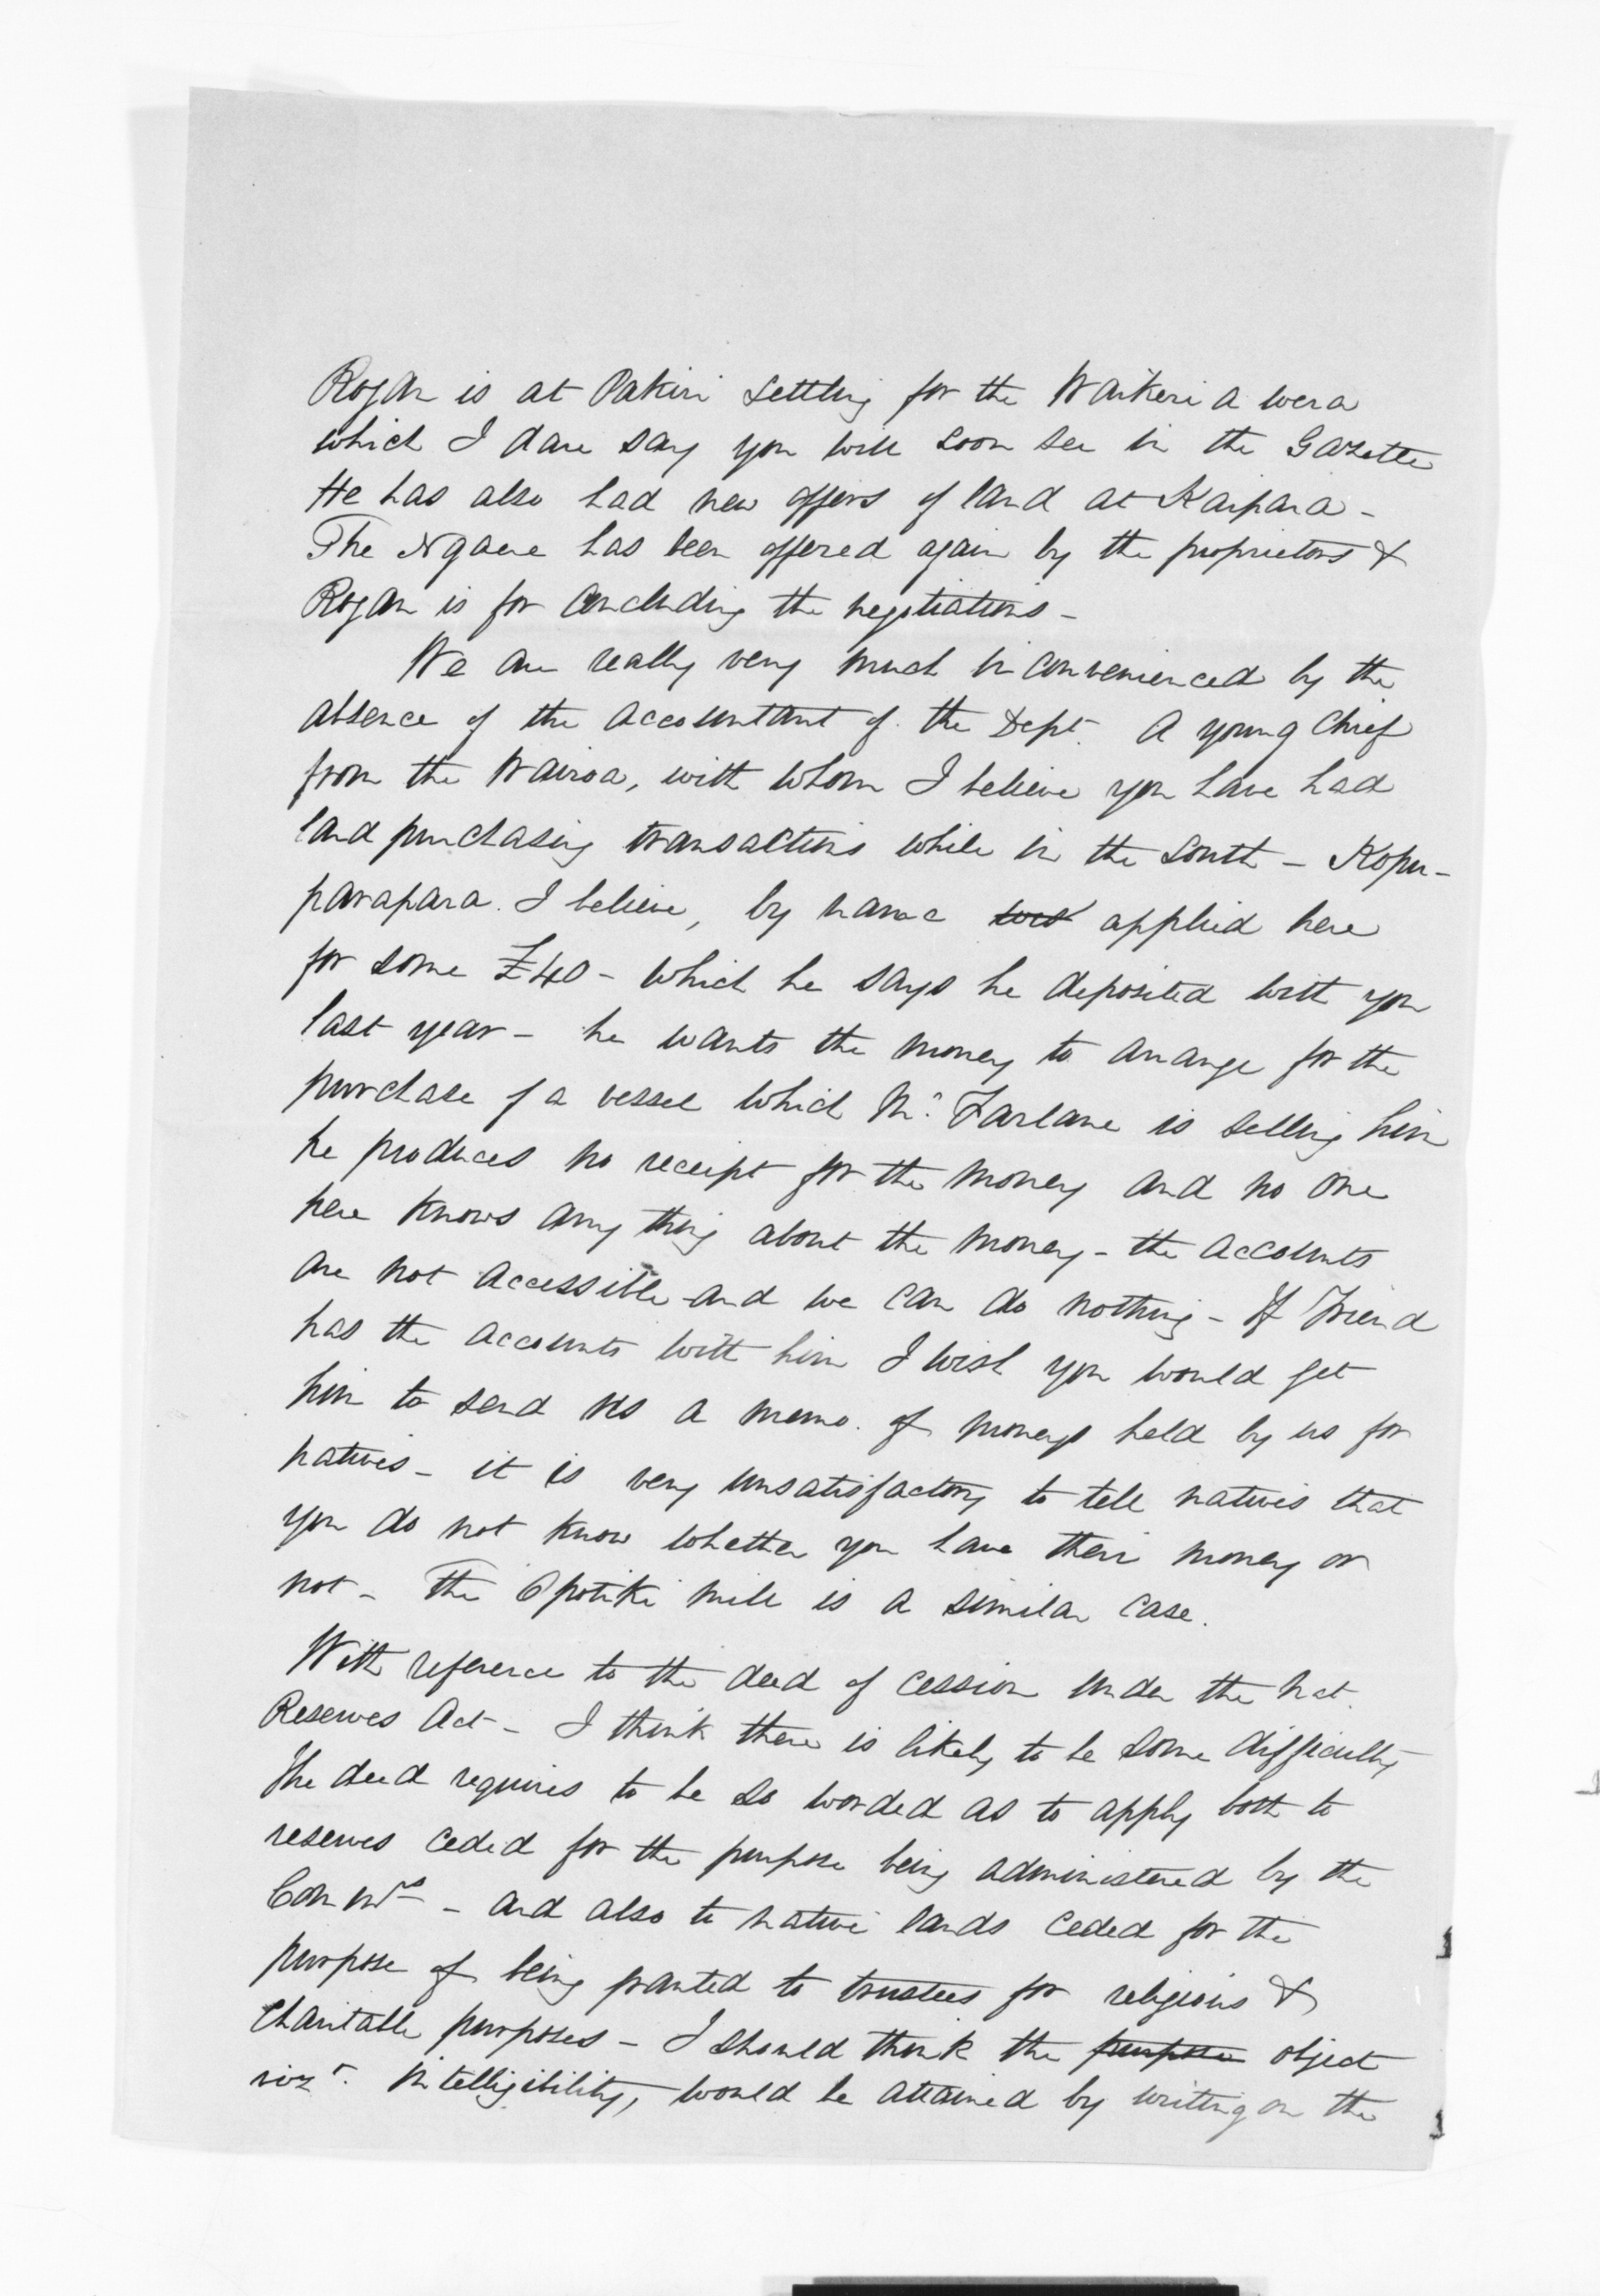 Rogan is at Pakiri settling for the Waikeri a wera
which I dare say you will soon see in the Gazette
He has also had new offers of land at Kaipara -
The Ngaere has been offered again by the proprietors &
Rogan is for concluding the negotiations -
We are really very much inconvenienced by the
absence of the accountant of the Dept. A young Chief
from the Wairoa, with whom I believe you have had
land purchasing transactions while in the South - Kopu-
parapara. I believe, by name applied here
for some £40 - which he says he deposited with you
last year - he wants the money to arrange for the
purchase of a vessel which Mc. Farlane is selling him
he produces no receipt for the money and no one
here knows any thing about the money - the accounts
are not accessible and we can do nothing - If Friend
has the accounts with him I wish you would get
him to send us a memo. of moneys held by us for
natives - it is very unsatisfactory to tell natives that
you do not know whether you have their money or
not - The Opotiki mill is a similar case.
With reference to the deed of cession under the Nat.
Reserves Act - I think there is likely to be some difficulty
The deed requires to be so worded as to apply both to
reserves ceded for the purpose being administered by the
Comrs - and also to native lands ceded for the
purpose of being granted to trustees for religious &
Charitable purposes - I should think the purpose object
vizt. intelligibility, would be attained by writing on the